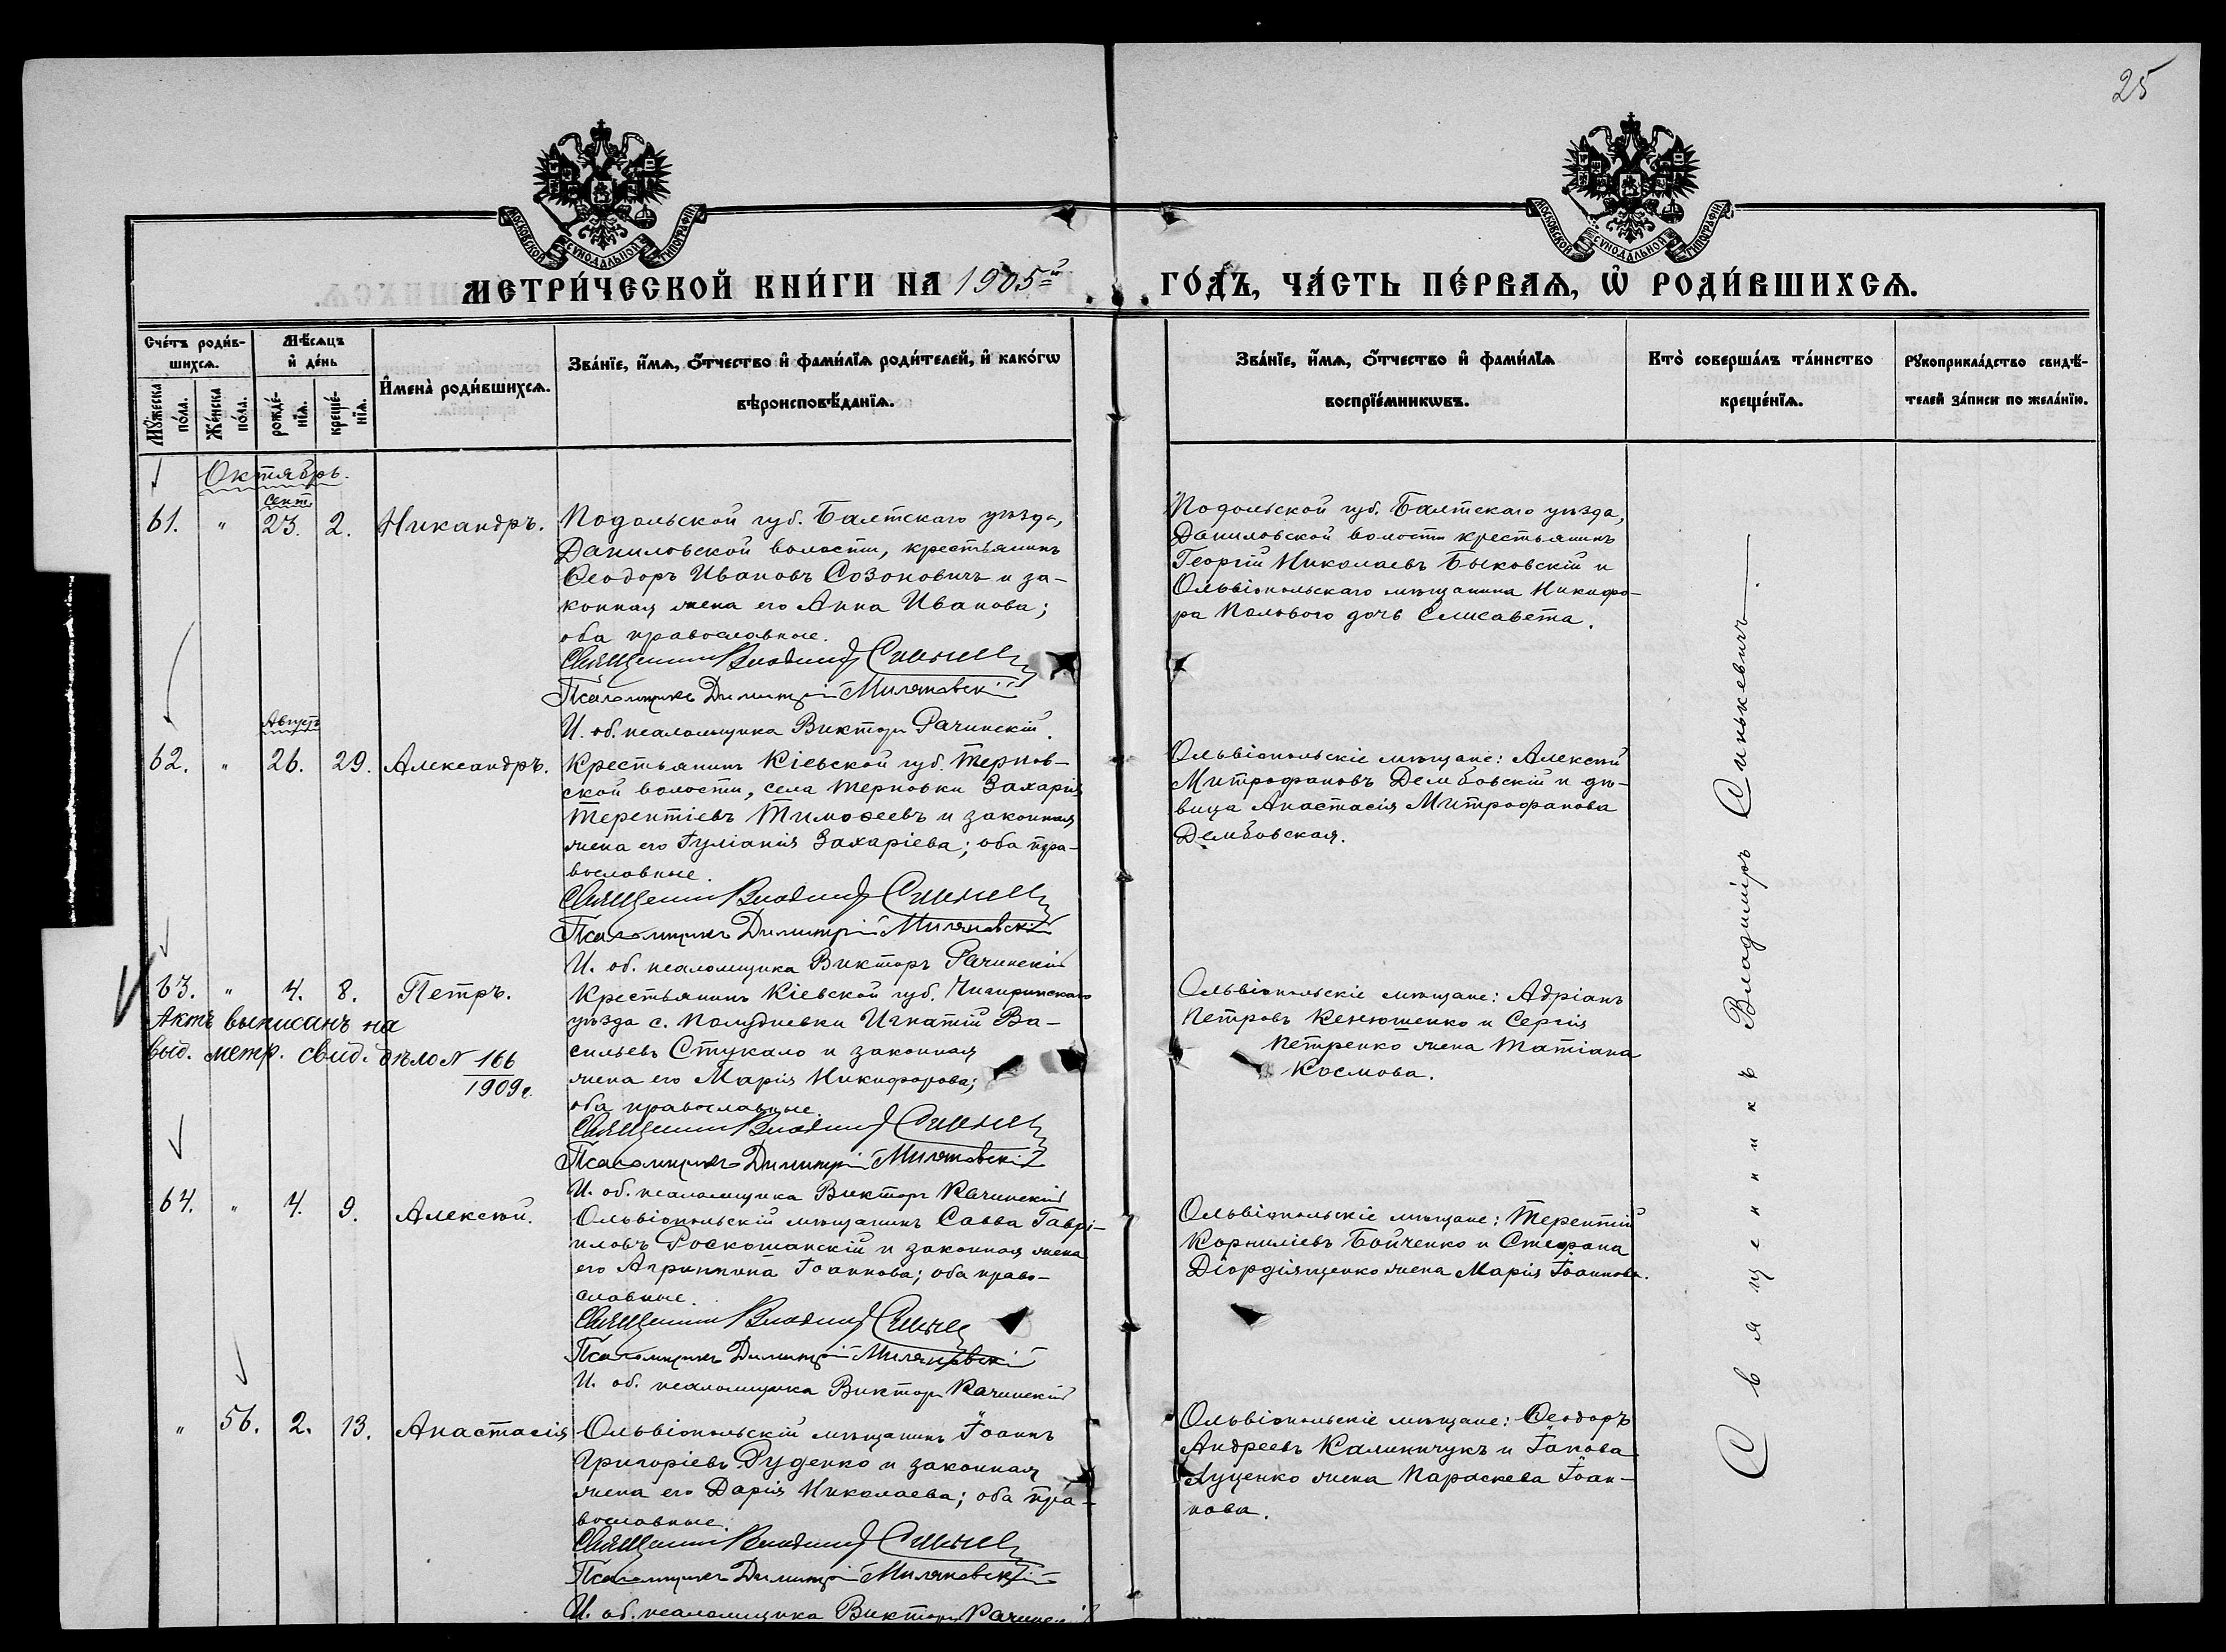 25
МОСКОВСКОЙ СѴНОДАЛЬНОЙ ТИПОГРАФІИ
МОСКОВСКОЙ СѴНОДАЛЬНОЙ ТИПОГРАФІИ
МЕТРИ́ЧЕСКОЙ КНИ́ГИ НА 1905й ГО́ДЪ, ЧА́СТЬ ПЕ́РВАѦ, Ѡ҆ РОДИ́ВШИХСѦ.
Сче́тъ роди́в-
шихсѧ.
Мѹ́жеска по́ла.
Же́нска по́ла.
Мѣ́сѧцъ
и҆ де́нь
рожде́-нїѧ.
креще́-нїѧ.
И҆мена̀ роди́вшихсѧ.
Зва́нїе, и҆́мѧ, ѻ҆́тчество и҆ фами́лїѧ роди́телей, и҆ како́гѡ
вѣроисповѣ́данїѧ.
Зва́нїе, и҆́мѧ, ѻ҆́тчество и҆ фами́лїѧ
воспрїе́мникѡвъ.
Кто̀ соверша́лъ та́инство
креще́нїѧ.
Рꙋкоприкла́дство свидѣ́-
телей за́писи по жела́нїю.
Октябрь.
сент.
61. " 23. 2. Никандръ.
Подольской губ. Балтскаго уѣзда,
Даниловской волости, крестьянинъ
Ѳеодоръ Ивановъ Созоновичъ и за-
конная жена его Анна Иванова;
оба православные.
Священникъ Владимиръ Синькев
Псаломщикъ Димитрій
И. об. псаломщика Викторъ Рачинскій.
Подольской губ. Балтскаго уѣзда,
Даниловской волости крестьянинъ
Георгій Николаевъ Быковскій и
Ольвіопольскаго мѣщанина Никифо-
ра Полового дочь Елисавета.
Августъ
62. " 26. 29. Александръ.
Крестьянинъ Кіевской губ. Тернов-
ской волости, села Терновки Захарія
Терентіевъ Тимоѳеевъ и законная
жена его Іуліанія Захаріева; оба пра-
вославные.
Священникъ Владимиръ Синькев
Псаломщикъ Димитрій
И. об. псаломщика Викторъ Рачинскій
Ольвіопольскіе мѣщане: Алексѣй
Митрофановъ Дембовскій и дѣ-
вица Анастасія Митрофанова
Дембовская.
63. " 4. 8. Петръ.
Актъ выписанъ на
выд. метр. свид. дѣло N 166
1909 г.
Крестьянинъ Кіевской губ. Чигиринскаго
уѣзда с. Полудневки Игнатій Ва-
сильевъ Стукало и законная
жена его Марія Никифорова;
оба православные.
Священникъ Владимиръ Синькев
Псаломщикъ Димитрій
И. об. псаломщика Викторъ Рачинскій
Ольвіопольскіе мѣщане: Адріанъ
Петровъ и Сергія
Петренко жена Татіана
Космова.
64. " 4. 9. Алексѣй.
Ольвіопольскій мѣщанинъ Савва Гаврі-
иловъ Роскошанскій и законная жена
его Агриппина Іоаннова; оба право-
славные.
Священникъ Владимиръ Синькев
Псаломщикъ Димитрій
И. об. псаломщика Викторъ Рачинскій
Ольвіопольскіе мѣщане: Терентій
Корниліевъ Бойченко и Стефана
Діордіященко жена Марія Іоаннова.
" 56. 2. 13. Анастасія
Ольвіопольскій мѣщанинъ Іоаннъ
Григоріевъ Руденко и законная
жена его Дарія Николаева; оба пра-
вославные.
Священникъ Владимиръ Синькев
Псаломщикъ Димитрій
И. об. псаломщика Викторъ Рачинскій
Ольвіопольскіе мѣщане: Ѳеодоръ
Андреевъ Калиничукъ и Іакова
Луценко жена Параскева Іоан-
нова.
Священникъ Владиміръ Синькевичъ.